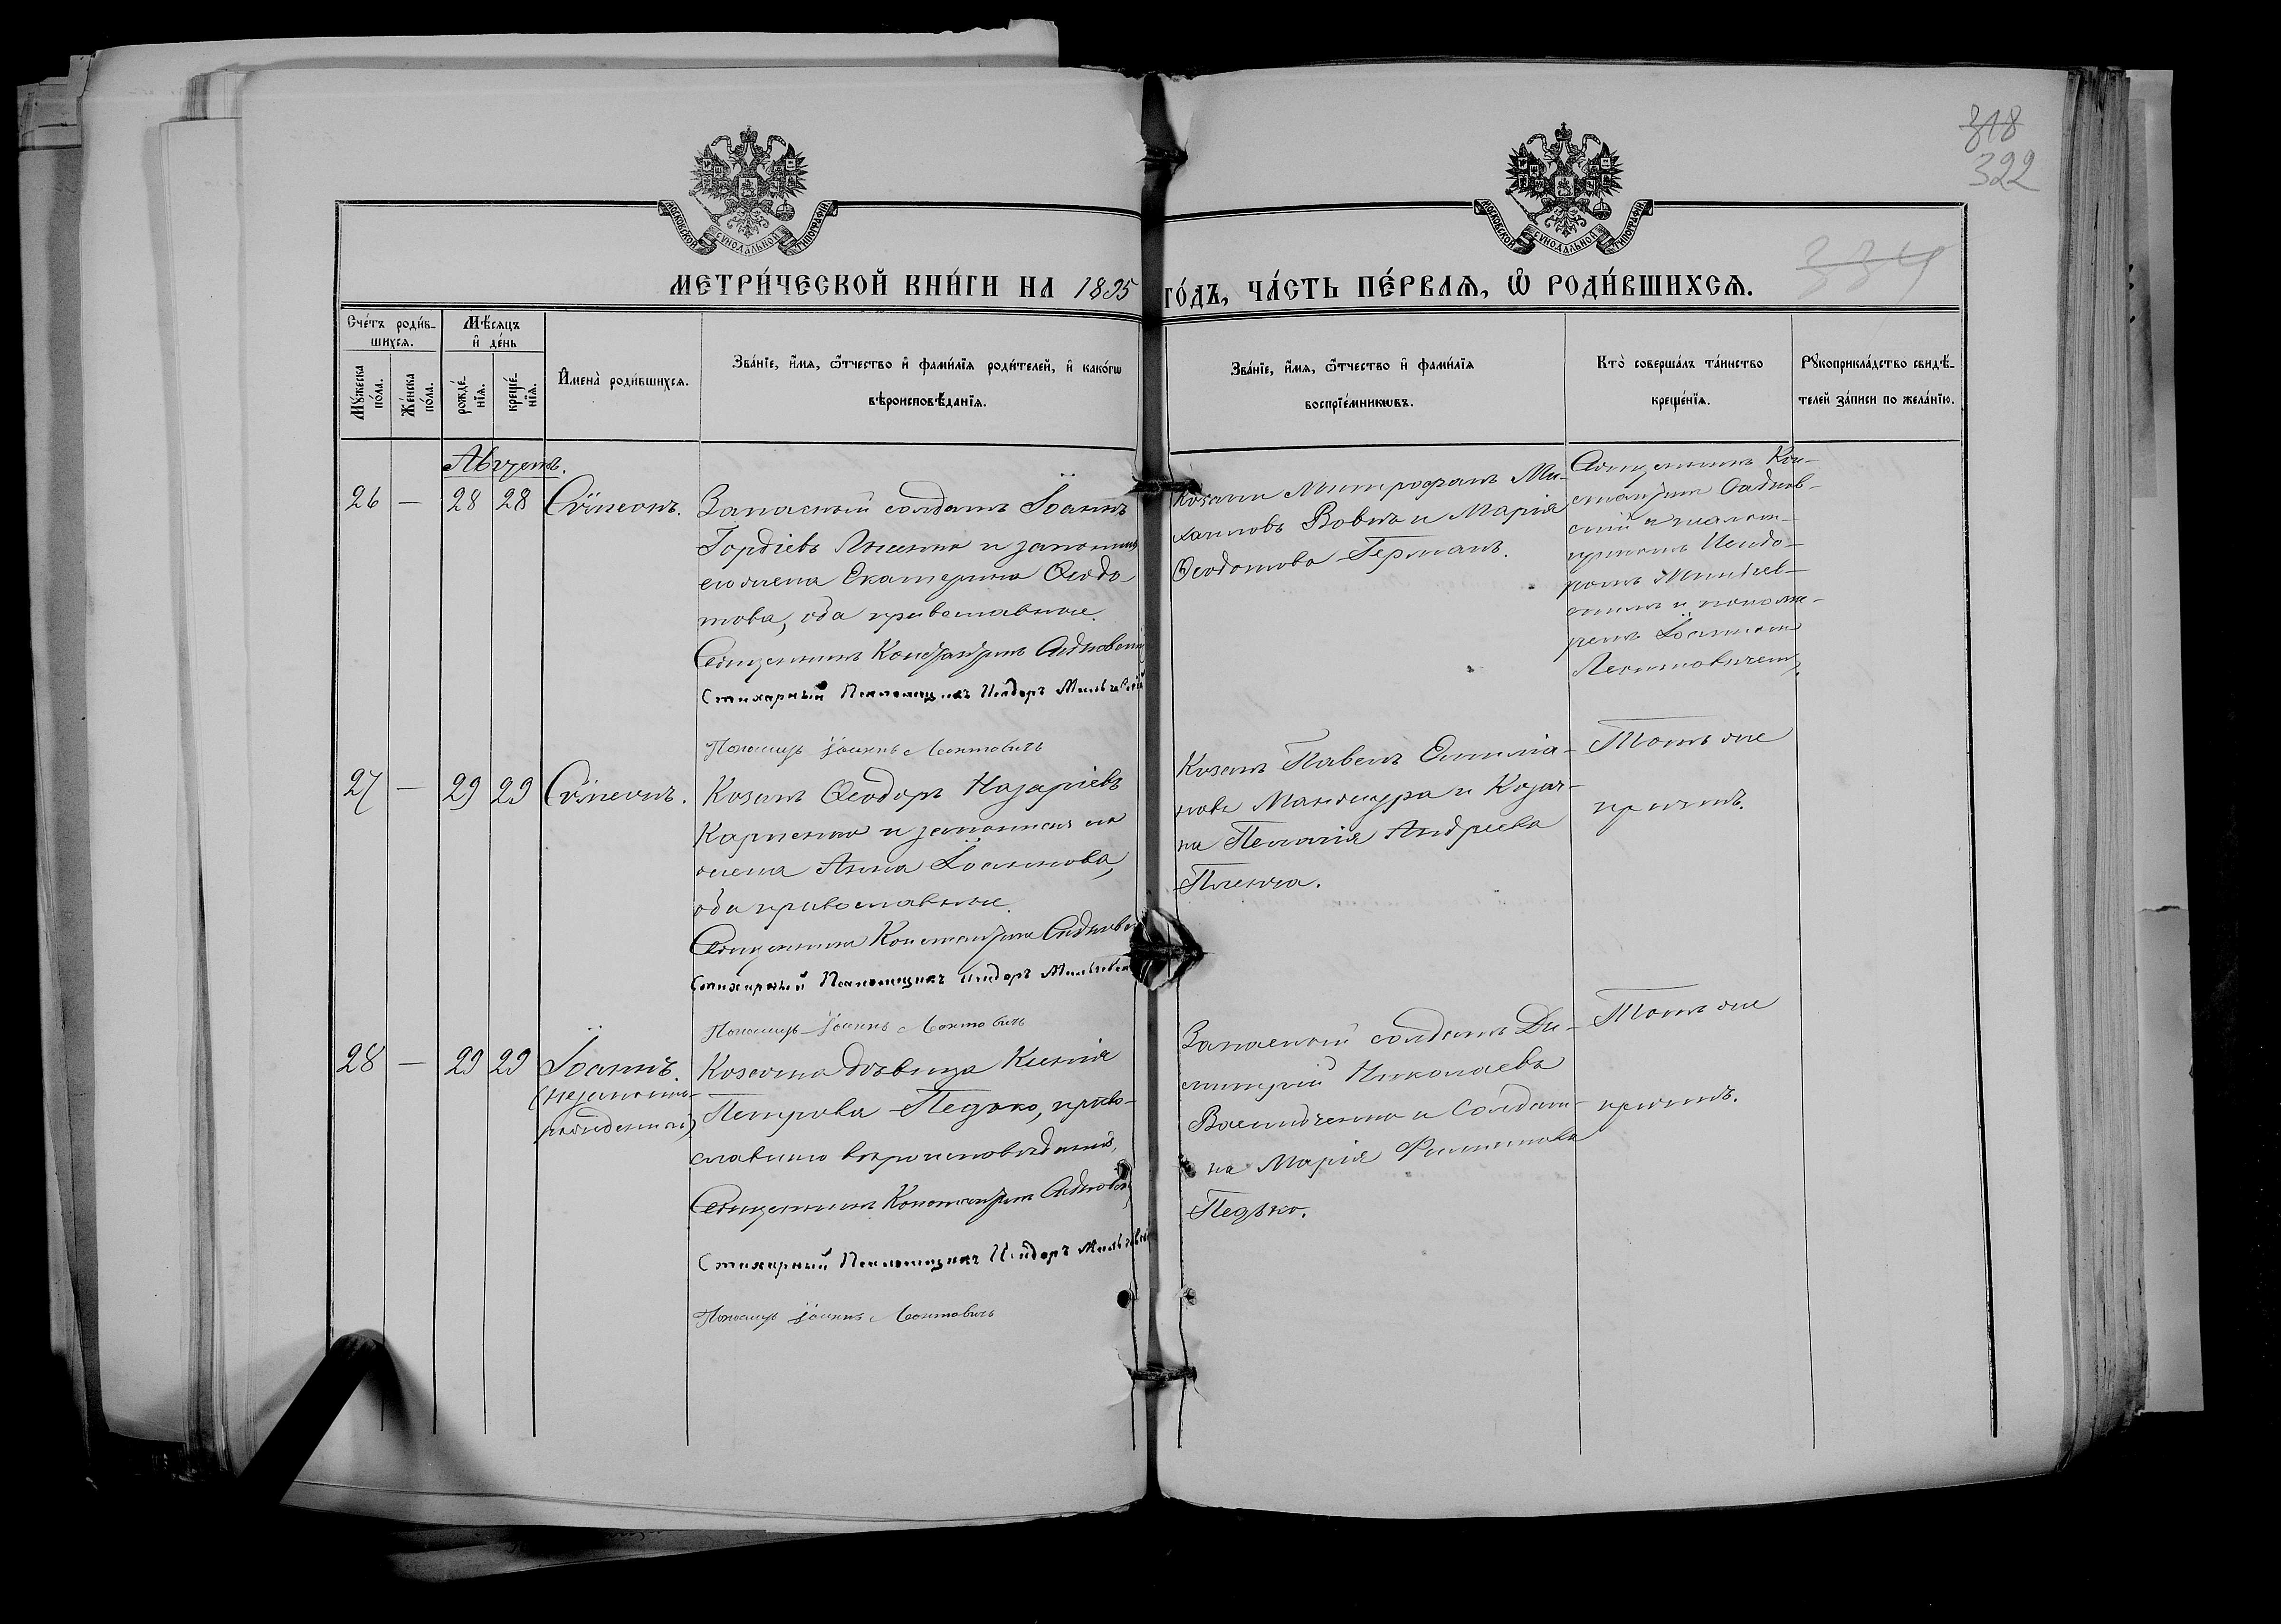 318
322
334
МОСКОВСКОЙ СУНОДАЛЬНОЙ ТИПОГРАФІИ
МОСКОВСКОЙ СУНОДАЛЬНОЙ ТИПОГРАФІИ
МЕТРИ́ЧЕСКОЙ КНИ́ГИ НА 1895 ГО́ДЪ, ЧА́СТЬ ПЕ́РВАЯ, Ѡ РОДИ́ВШИХСЯ.
Сче́тъ роди́в-
шихся.
Мѣ́сяцъ
и де́нь
Му́жеска
по́ла.
Же́нска
по́ла.
рожде́-
нїя.
креще́-
нїя.
Имена̀ роди́вшихся.
Зва́нїе, и́мя, ѻ́тчество и фами́лїя роди́телей, и како́гѡ
вѣроисповѣ́данїя.
Зва́нїе, и́мя, ѻ́тчество и фами́лїя
воспрїе́мникѡвъ.
Кто̀ соверша́лъ та́инство
креще́нїя.
Рꙋкоприкла́дство свидѣ́-
телей за́писи по жела́нїю.
Августъ.
26 — 28 28 Сѵмеонъ.
Запасный солдатъ Іоаннъ
Гордіевъ Лысенко и законная
его жена Екатерина Ѳеодо-
това, оба православные.
Священникъ Константинъ Садковскій
Стихарный Псаломщикъ Исидоръ Мильчевскій
Пономарь Іоаннъ Леонтовичъ
Козакъ Митрофанъ Ми-
хаиловъ Вовкъ и Марія
Ѳеодотова Германъ.
Священникъ Кон-
стантинъ Садков-
скій съ псалом-
щикомъ Исидо-
ромъ Мильчев-
скимъ и понома-
ремъ Іоанномъ
Леонтовичемъ.
27 — 29 29 Сѵмеонъ.
Козакъ Ѳеодоръ Назаріевъ
Карпенко и законная его
жена Анна Іоаннова,
оба православные.
Священникъ Константинъ Садковскій
Стихарный Псаломщикъ Исидоръ Мильчевскій
Пономарь Іоаннъ Леонтовичъ
Козакъ Павелъ Емиліа-
новъ Манжура и Козач-
ка Пелагія Андреева
Тотъ же
причтъ.
28 — 29 29 Іоаннъ.
(незаконно-
рожденный)
Козачка дѣвица Ксенія
Петрова Педько, право-
славнаго вѣроисповѣданія.
Священникъ Константинъ Садковскій
Стихарный Псаломщикъ Исидоръ Мильчевскій
Пономарь Іоаннъ Леонтовичъ
Запасный солдатъ Ди-
митрій Николаевъ
Васильченко и Солдат-
ка Марія Филиппова
Педько.
Тотъ же
причтъ.